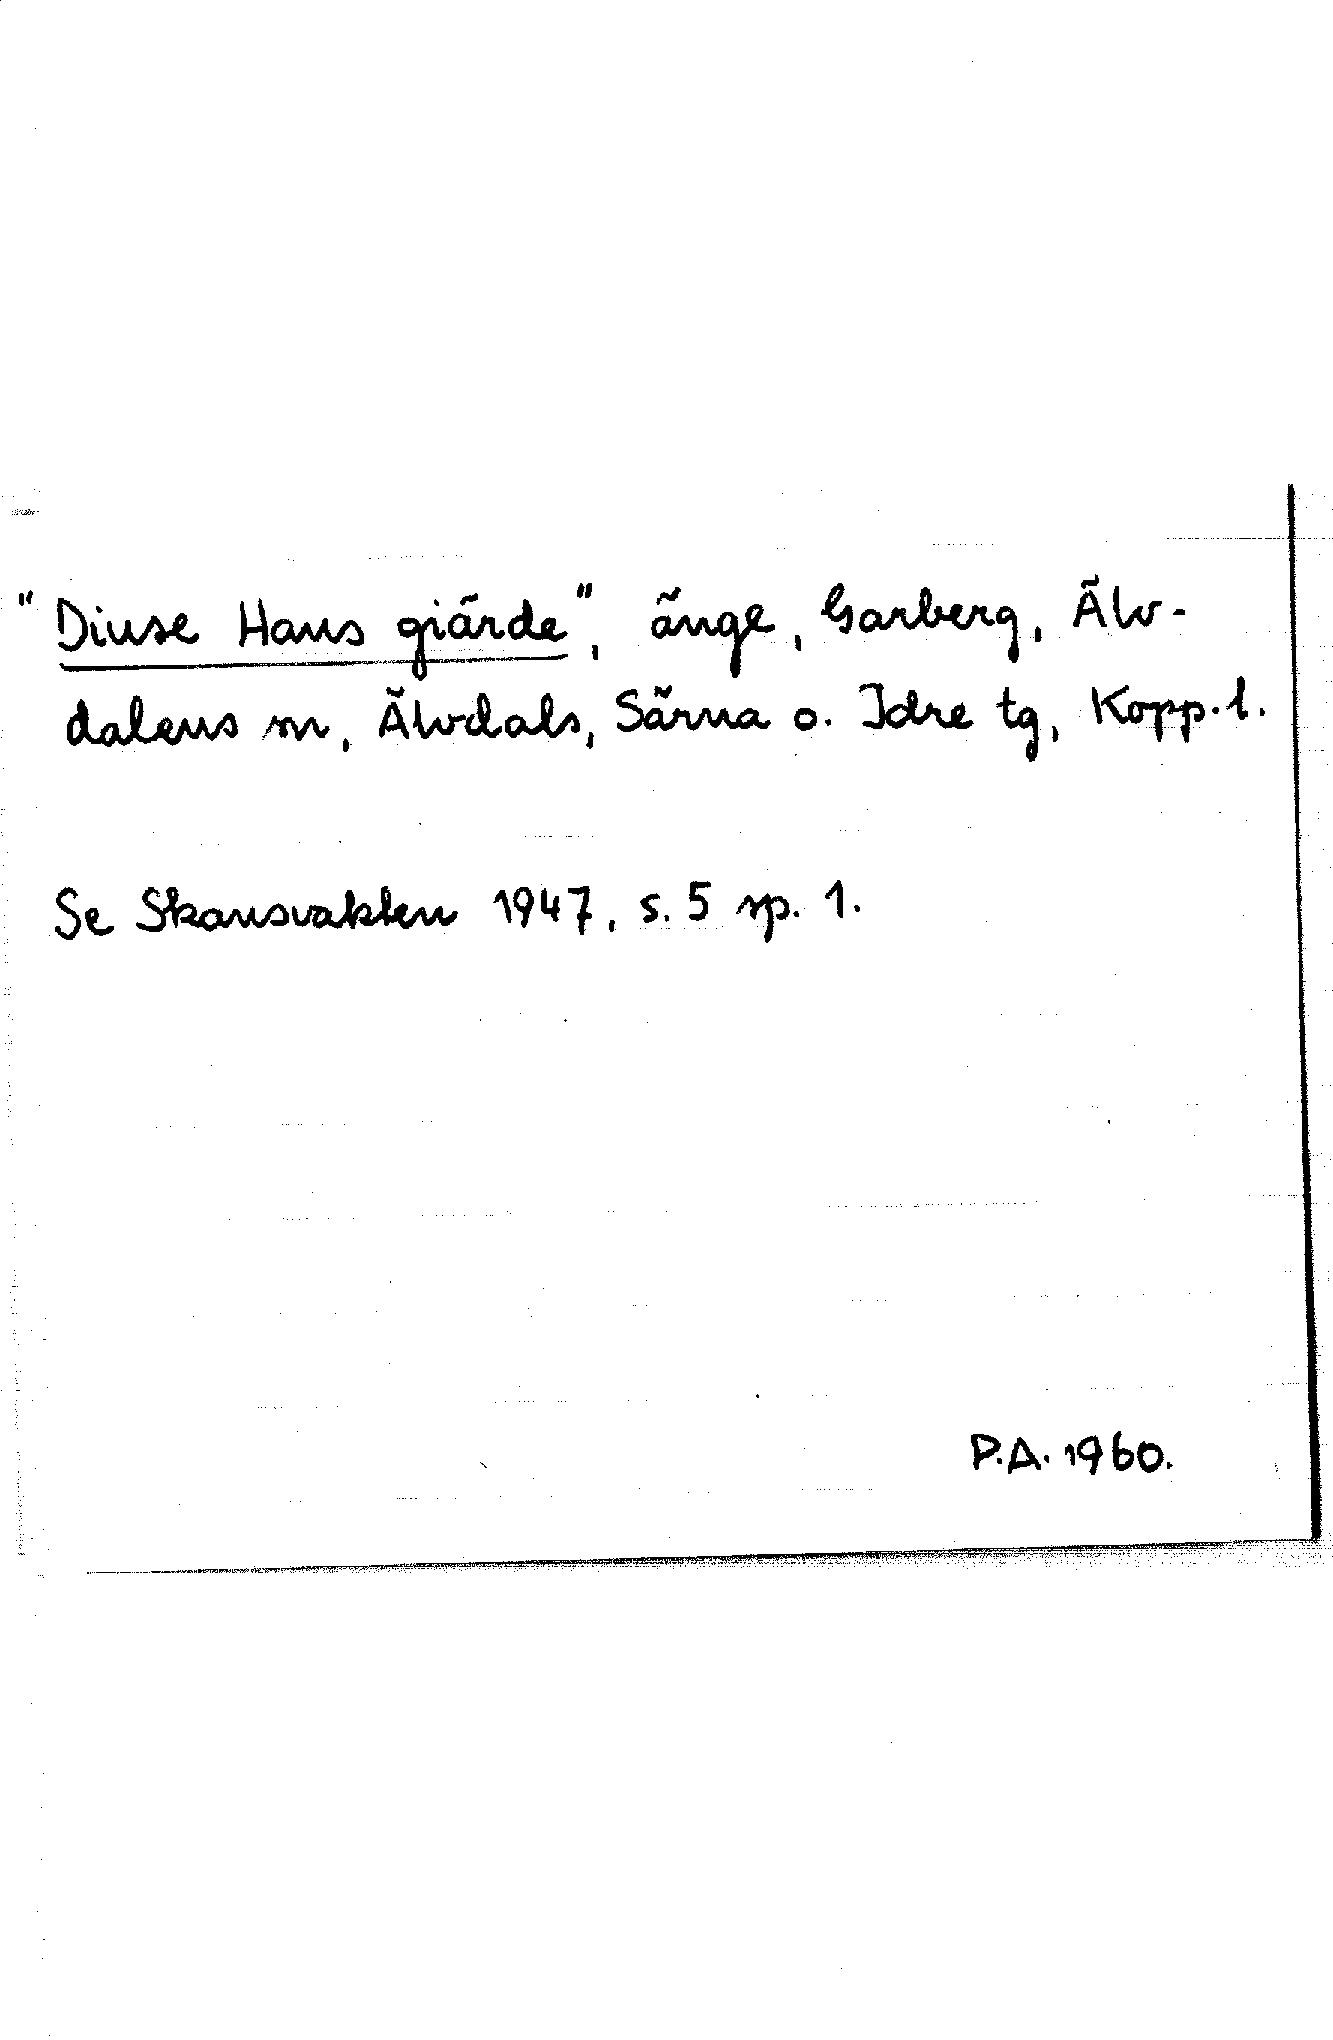 "Diuse Hans giärde", änge, Garberg, Älv-
dalens sn, Älvdals, Särna o. Idre tg, Kopp. l.
Se Skansvakten 1947, s. 5 sp. 1.
P.A. 1960.